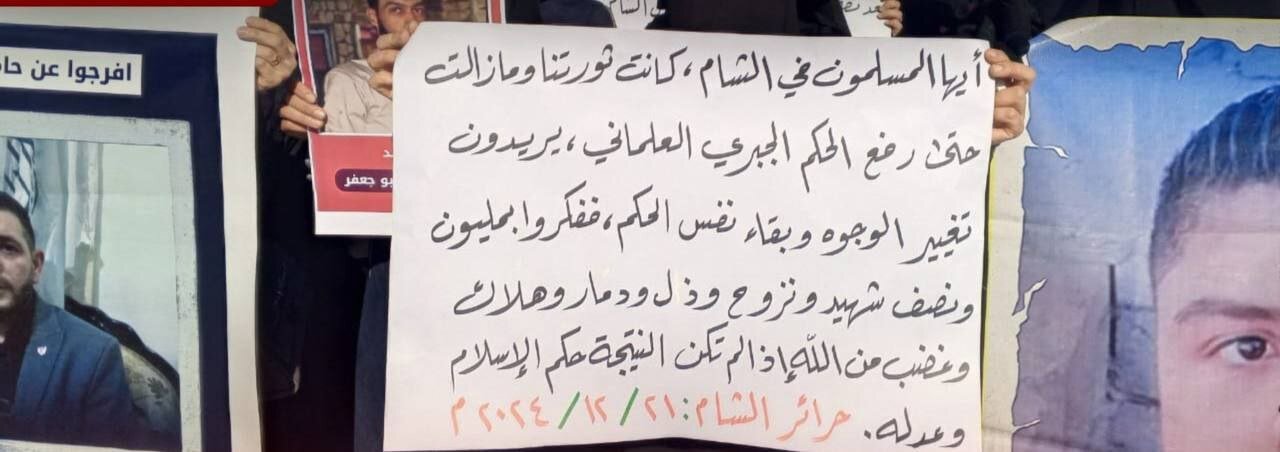 أيها المسلمون في الشام، كانت ثورتنا ومازالت
حتى رفع الحكم الجبري العلماني، يريدون
تغيير الوجوه وبقاء نفس الحكم، ففكروا بمليون
ونصف شهيد ونزوح وذل ودمار وهلاك
وغضب من الله إذا لم تكن النتيجة حكم الإسلام
وعدله. حرائر الشام: ٢١/١٢/٢٠٢٤م
افرجوا عن
بو جعفر
الشام